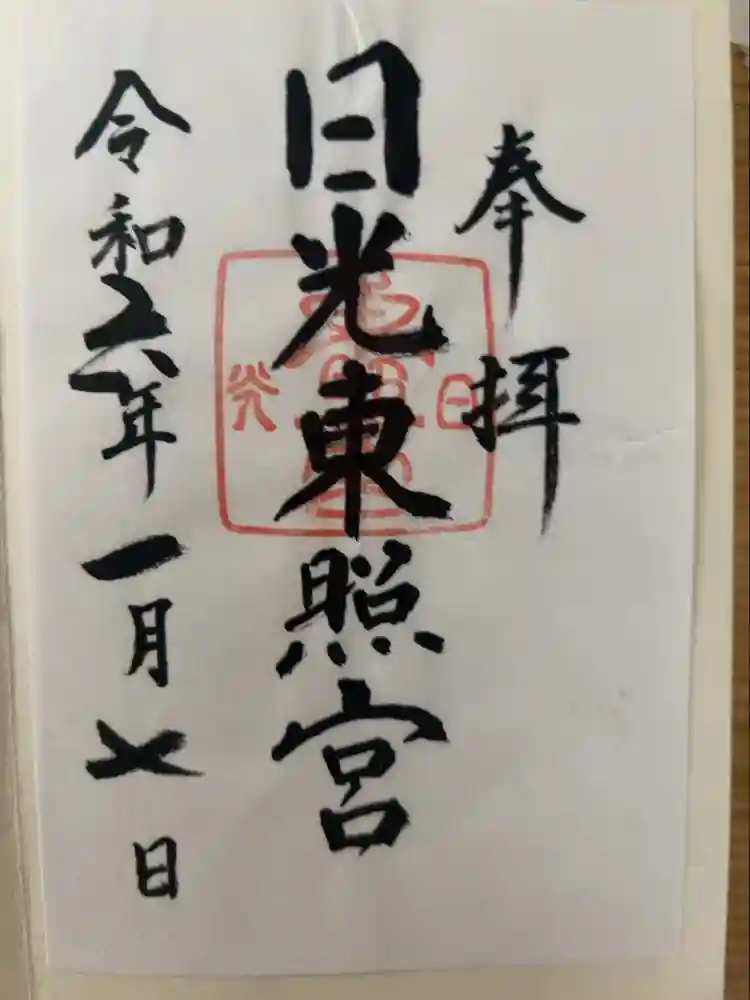 奉拝
日光東照宮
令和六年一月七日
日光